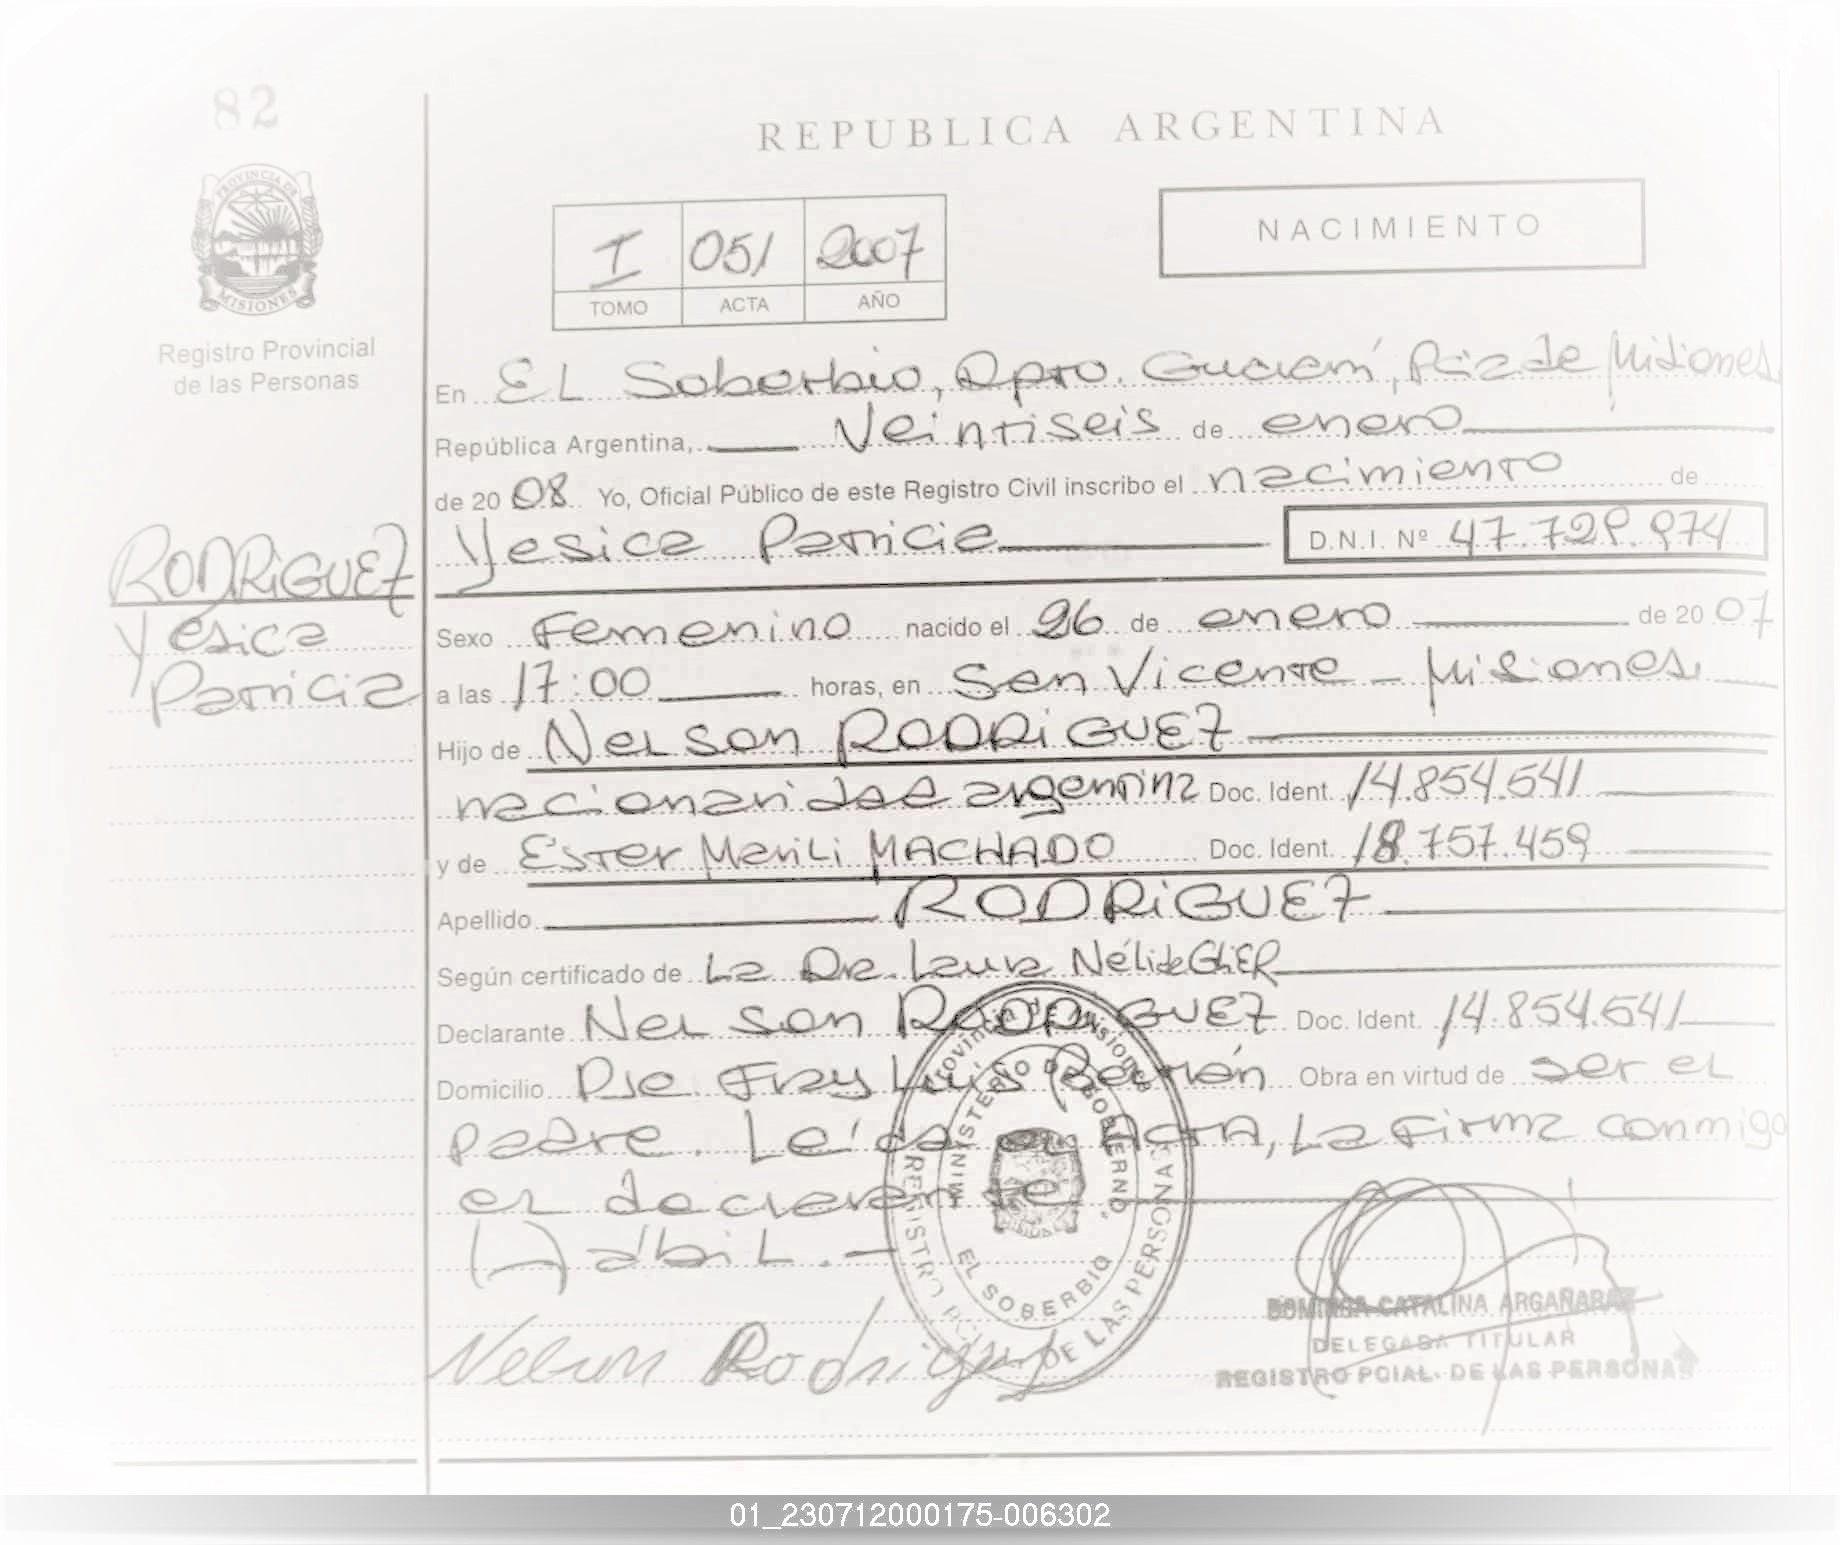 82
REPUBLICA ARGENTINA
PROVINCIA DE
MISIONES
Registro Provincial
de las Personas
I 051 2007
TOMO ACTA AÑO
NACIMIENTO
En EL Soberbio, Dpto. Guaraní, Pcia de Misiones
República Argentina, Veintiseis de enero
de 2008 Yo, Oficial Público de este Registro Civil inscribo el nacimiento de
Yesica Patricia D.N.I. Nº 47.729.974
RODRIGUEZ
Yesica
Patricia
Sexo Femenino nacido el 26 de enero de 2007
a las 17:00 horas, en San Vicente - Misiones
Hijo de Nelson RODRIGUEZ
nacionalidad argentina Doc. Ident. 14.854.541
y de Ester Marili MACHADO Doc. Ident. 18.757.459
Apellido RODRIGUEZ
Según certificado de La Dra. Laura Nélida
Declarante Nelson RODRIGUEZ Doc. Ident. 14.854.541
Domicilio Pje Fray Luis Beltrán Obra en virtud de ser el
padre. Leída el ACTA, La Firma conmigo
el declarante
Hábil.-
Provincia de Misiones
MINISTERIO DE GOBIERNO
EL SOBERBIO
REGISTRO PCIAL. DE LAS PERSONAS
Nelson Rodriguez
CATALINA ARGAÑARAZ
DELEGADA TITULAR
REGISTRO PCIAL. DE LAS PERSONAS
01_230712000175-006302